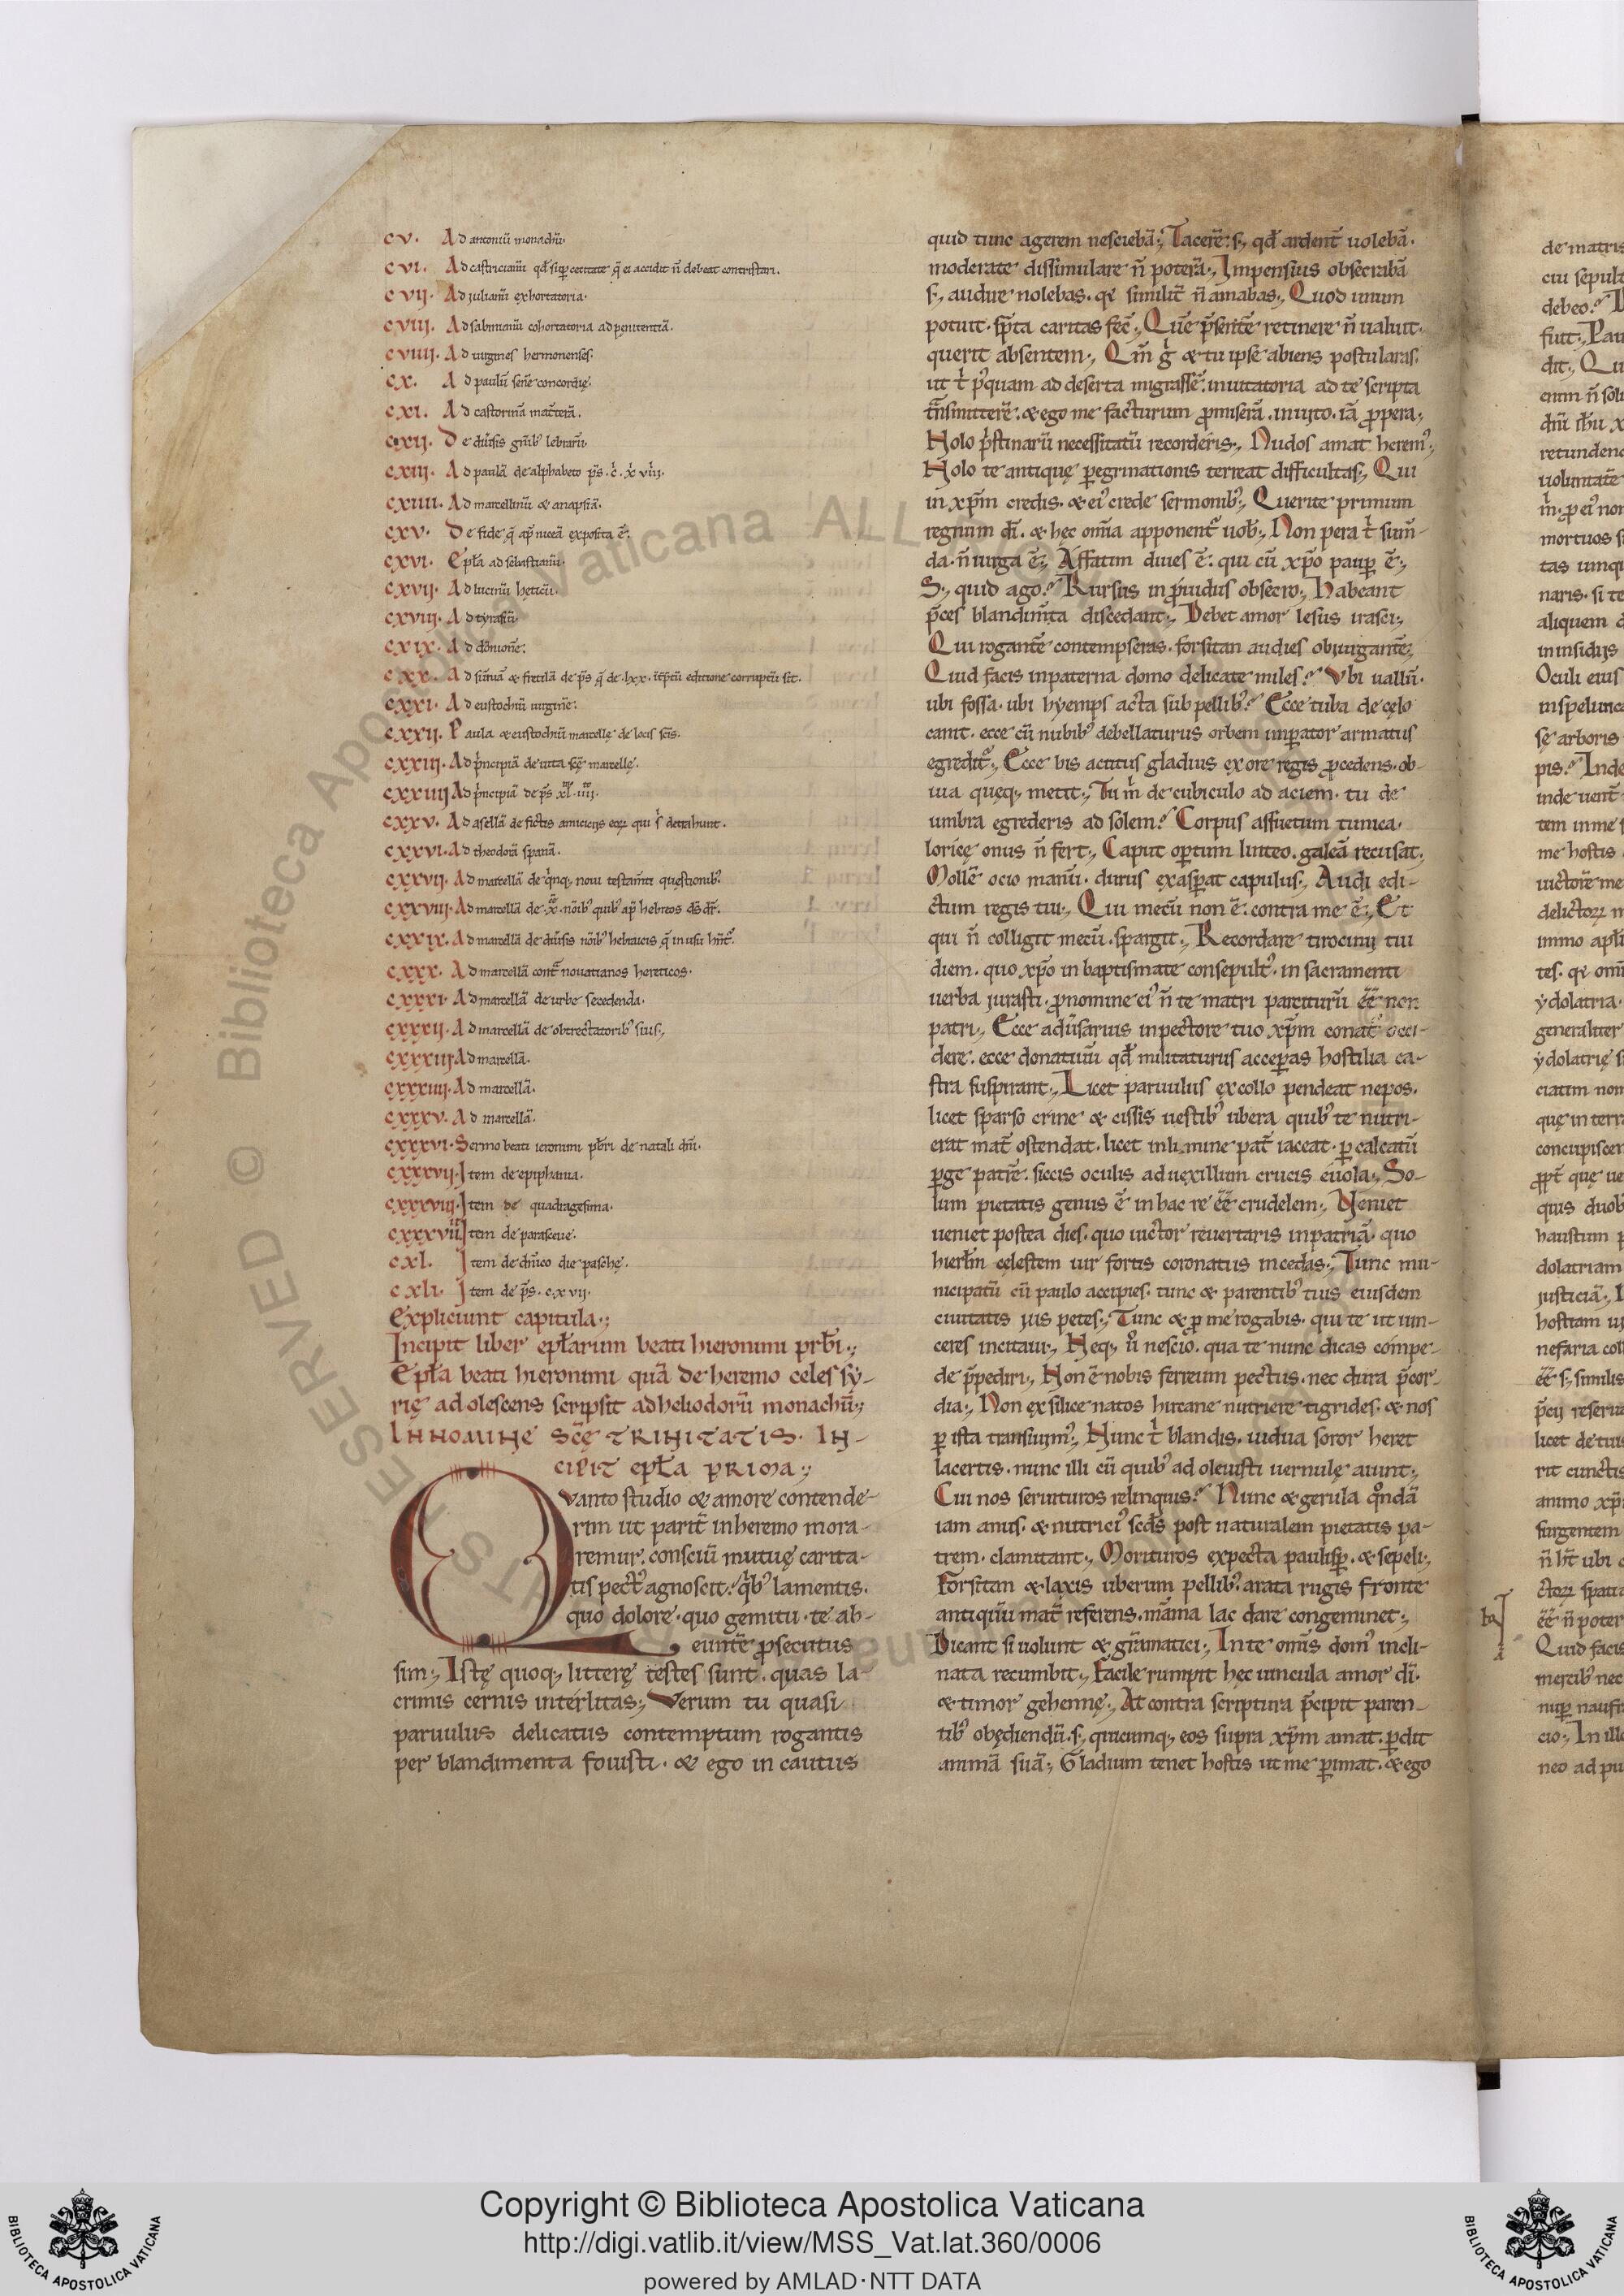 cv. Ad antoniū monachū.
cvi. Ad castricianū qđ sup cecitate q̄ ei accidit n̄ debeat contristari.
cvii. Ad julianū exhortatoria.
cviii. Ad sabinianū cohortatoria ad penitentiā.
cviiii. Ad uirgines hermonenses.
cx. Ad paulū senē concordię.
cxi. Ad castorinā mat̄terā.
cxii. De diūsis grīb' lebrarū.
cxiii. Ad paulā de alphabeto p̄s. c. x viii.
cxiiii. Ad marcellinū & anapsiā.
cxv. De fide q̄ ap̄ niceā exposita ē.
cxvi. Epła ad sebastianū.
cxvii. Ad lucinū beticū.
cxviii. Ad tyrasiū.
cxix. Ad dōnionē.
cxx. Ad suniā & fretelā de p̄s q̄ de lxx. īt̄p̄tū editione corruptū sīt.
cxxi. Ad eustochiū uirginē.
cxxii. Paula & eustochiū marcellę de locis sc̄is.
cxxiii. Ad p̄ncipiā de uita sc̄ę marcellę.
cxxiiii Ad p̄ncipiā de p̄s xl. iiii.
cxxv. Ad asellā de fictis amiciciis eoꝝ qui s̄ detrahunt.
cxxvi. Ad theodorā spanā.
cxxvii. Ad marcellā de q̄nq; noui testam̄ti questionib'.
cxxviii. Ad marcellā de x. nōib' quib' ap̄ hebreos ds̄ dr̄.
cxxix. Ad marcellā de diūsis nōib' hebraicis q̄ in usu hn̄t'.
cxxx. Ad marcellā cont̄ nouatianos hereticos.
cxxxi. Ad marcellā de urbe secedenda.
cxxxii. Ad marcellā de obtrectatorib' suis;
cxxxiii Ad marcellā.
cxxxiiii. Ad marcellā.
cxxxv. Ad marcellā.
cxxxvi. Sermo beati ieronimi pb̄ri de natali dn̄i.
cxxxvii. Item de epiphania.
cxxxviii. Item de quadragesima.
cxxxviiii Item de parasceue.
cxl. Item de dn̄ico die paschę.
cxli. Item de p̄s. cxvii.
Expliciunt capitula;
Incipit liber epłarum beati hieronimi prb̄i;
Epła beati hieronimi quā de heremo celes sy-
rię adolescens scripsit ad heliodorū monachū;
IN NOMINE SC̄Ę TRINITATIS. IN-
CIPIT EPŁA PRIMA;
Quanto studio & amore contende-
rim ut parit̄ in heremo mora-
remur. consciū mutuę carita-
tis pect' agnoscit. q̄b' lamentis.
quo dolore. quo gemitu. te ab-
euntē p̄secutus
sim; Istę quoq; litterę testes sunt. quas la-
crimis cernis interlitas; Verum tu quasi
paruulus delicatus contemptum rogantis
per blandimenta fouisti. & ego incautus
quid tunc agerem nesciebā; Tacerē. s; qđ ardent̄ uolebā.
moderate dissimulare n̄ poterā; Impensius obsecrabā
s; audire nolebas. qa similit̄ n̄ amabas; Quod unum
potuit. sp̄ta caritas fec̄; Quē p̄sentē retinere n̄ ualuit.
querit absentem; Qm̄ g̊ & tu ipse abiens postularas.
ut t̄ p'quam ad deserta migrassē. inuitatoria ad te scripta
tn̄smitterē. & ego me facturum p̄miserā. inuito. iā p̄pera;
Nolo p̄stinarū necessitatū recorderis; Nudos amat herem';
Nolo te antiquę p̄egrinationis terreat difficultas; Qui
in xp̄m credis. & ei' crede sermonib'; Querite primum
regnum dī. & hęc om̄ia apponent' uob'; Non pera t̄ sum̄-
da. n̄ uirga ē; Affatim diues ē. qui cū xp̄o paup ē;
S; quid ago? Rursus inp̄uidus obsecro; Habeant
p̄ces blandim̄ta discedant; Debet amor lesus irasci;
Qui rogantē contempseras. forsitan audies obiurgantē;
Quid facis in paterna domo delicate miles? Vbi uallū.
ubi fossa. ubi hyemps acta sub pellib'? Ecce tuba de cęlo
canit. ecce cū nubib' debellaturus orbem imp̄ator armatus
egredit'; Ecce bis acutus gladius ex ore regis p̄cedens. ob-
uia queq; metit; Tu m̄ de cubiculo ad aciem. tu de
umbra egrederis ad solem? Corpus assuetum tunica.
loricę onus n̄ fert; Caput op̄tum linteo. galeā recusat.
Mollē ocio manū. durus exasp̄at capulus; Audi edi-
ctum regis tui; Qui mecū non ē. contra me ē; Et
qui n̄ colligit mecū. spargit; Recordare tirocinii tui
diem. quo xp̄o in baptismate consepult'. in sacramenti
uerba jurasti. p̄ nomine ei' n̄ te matri parciturū ēē non
patri; Ecce adūsarius in pectore tuo xp̄m conat' occi-
dere. ecce donatiuū qđ militaturus accep̄as hostilia ca-
stra suspirant; Licet paruulus ex collo pendeat nepos.
licet sparso crine & cissis uestib' ubera quib' te nutri-
erat mat̄ ostendat. licet in limine pat̄ iaceat. p̄ calcatū
p̄ge patrē. siccis oculis ad uexillum crucis euola; So-
lum pietatis genus ē in hac re ēē crudelem; Veniet
ueniet postea dies. quo uictor reuertaris in patriā. quo
hierłm celestem uir fortis coronatus incedas; Tunc mu-
nicipatū cū paulo accipies. tunc & parentib' tuis eiusdem
ciuitatis jus petes; Tunc & p̄ me rogabis. qui te ut uin-
ceres incitaui; Neq; ů nescio. qua te nunc dicas compe-
de p̄pediri; Non ē nobis ferreum pectus. nec dura p̄cor-
dia; Non ex silice natos hircane nutriere tigrides. & nos
p̄ ista transiuim'; Nunc t̄ blandis. uidua soror heret
lacertis. nunc illi cū quib' adoleuisti uernulę aiunt;
Cui nos seruituros relinquis? Nunc & gerula q̊ndā
iam anus. & nutrici' scd̄s post naturalem pietatis pa-
trem. clamitant; Morituros expecta paulisp. & sepeli;
Forsitan & laxis uberum pellib'. arata rugis fronte
antiquū mat̄ referens. māma lac dare congeminet;
Dicant si uolunt & gram̄atici; In te om̄is dom' incli-
nata recumbit; Facile rumpit hęc uincula amor dī.
& timor gehennę; At contra scriptura p̄cipit paren-
tib' obędiendū. s; quicunq; eos supra xp̄m amat. p̄dit
animā suā; Gladium tenet hostis ut me p̄imat. & ego
de matris
debeo?
mortuos
naris. si te
in insidiis
Oculi eius
se arboris
me hostis
ydolatria.
generaliter
concupiscen
dolatriam
justiciā.
Quid facis
Copyright © Biblioteca Apostolica Vaticana
http://digi.vatlib.it/view/MSS_Vat.lat.360/0006
powered by AMLAD·NTT DATA
BIBLIOTECA APOSTOLICA VATICANA
BIBLIOTECA APOSTOLICA VATICANA